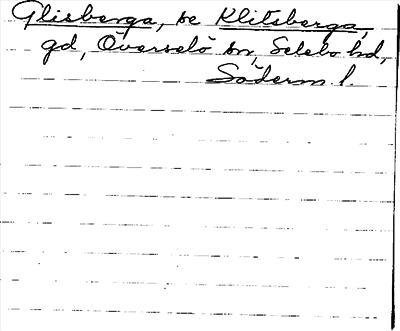 Glisberga, se Klitsberga,
gd, Överselö sn, Selebo hd,
Söderm. l.